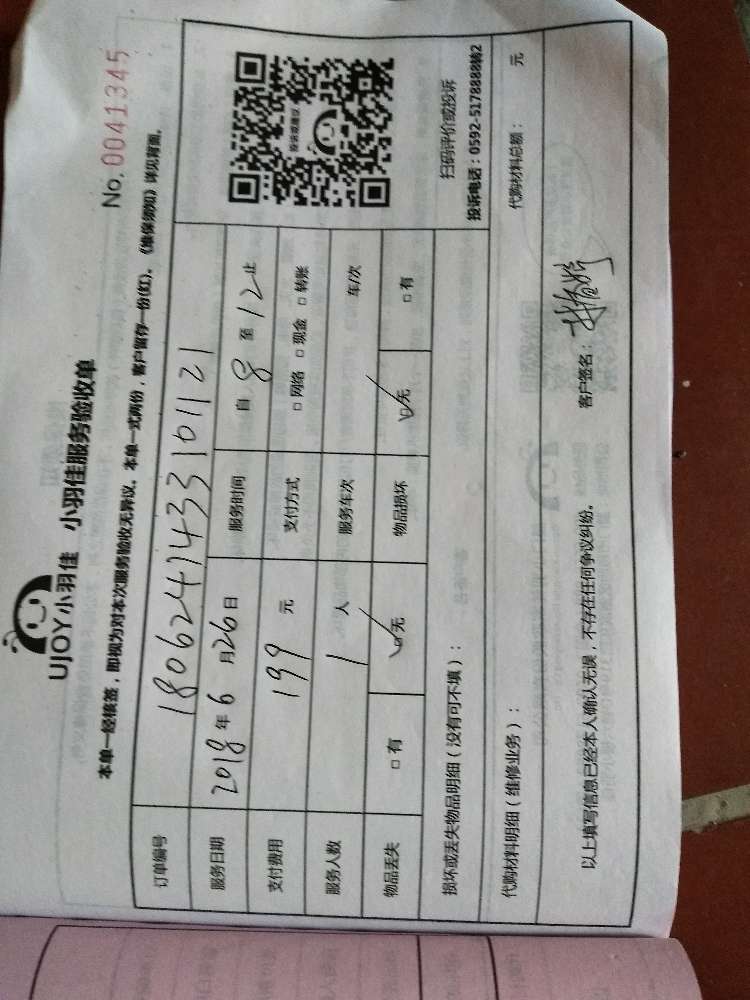 UJOY小羽佳 小羽佳服务验收单
No. 0041345
本单一经接签，即视为对本次服务验收无异议。本单一式两份，客户留存一份(红)。《维保须知》详见背面。
订单编号 180624174333101121
服务日期 2018年6月26日 服务时间 自 8 至 12 止
支付费用 199 元 支付方式 □网络 □现金 □转账
服务人数 1 人 服务车次 车/次
物品丢失 □有 ☑无 物品损坏 ☑无 □有
投诉或建议
扫码评价或投诉
投诉电话：0592-5178888转2
损坏或丢失物品明细（没有可不填）：
代购材料明细（维修业务）： 代购材料总额： 元
以上填写信息已经本人确认无误，不存在任何争议纠纷。 客户签名：